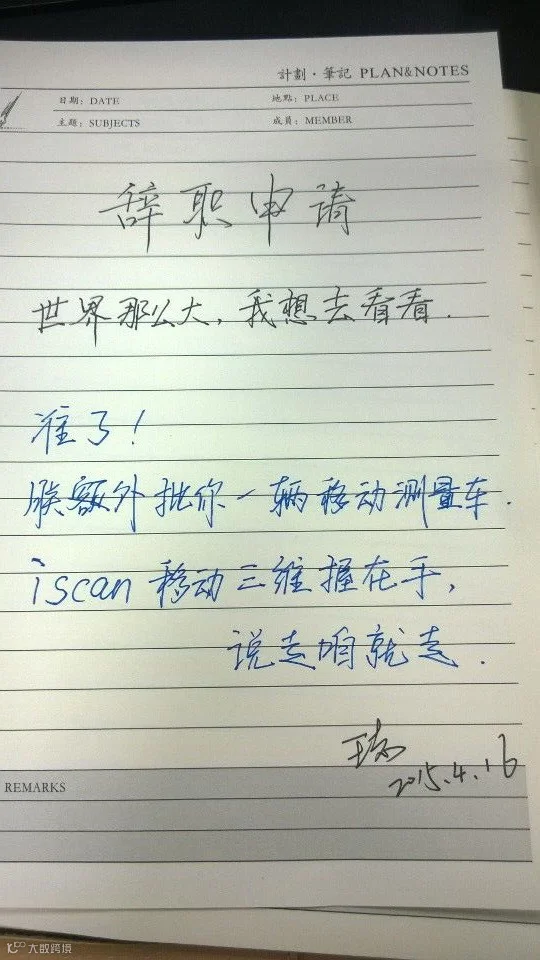 計劃·筆記 PLAN&NOTES
日期：DATE
地點：PLACE
主題：SUBJECTS
成員：MEMBER
辞职申请
世界那么大，我想去看看．
准了！
朕额外批你一辆移动测量车．
iscan 移动三维握在手，
说走咱就走．
2015.4.16
REMARKS
大数跨境